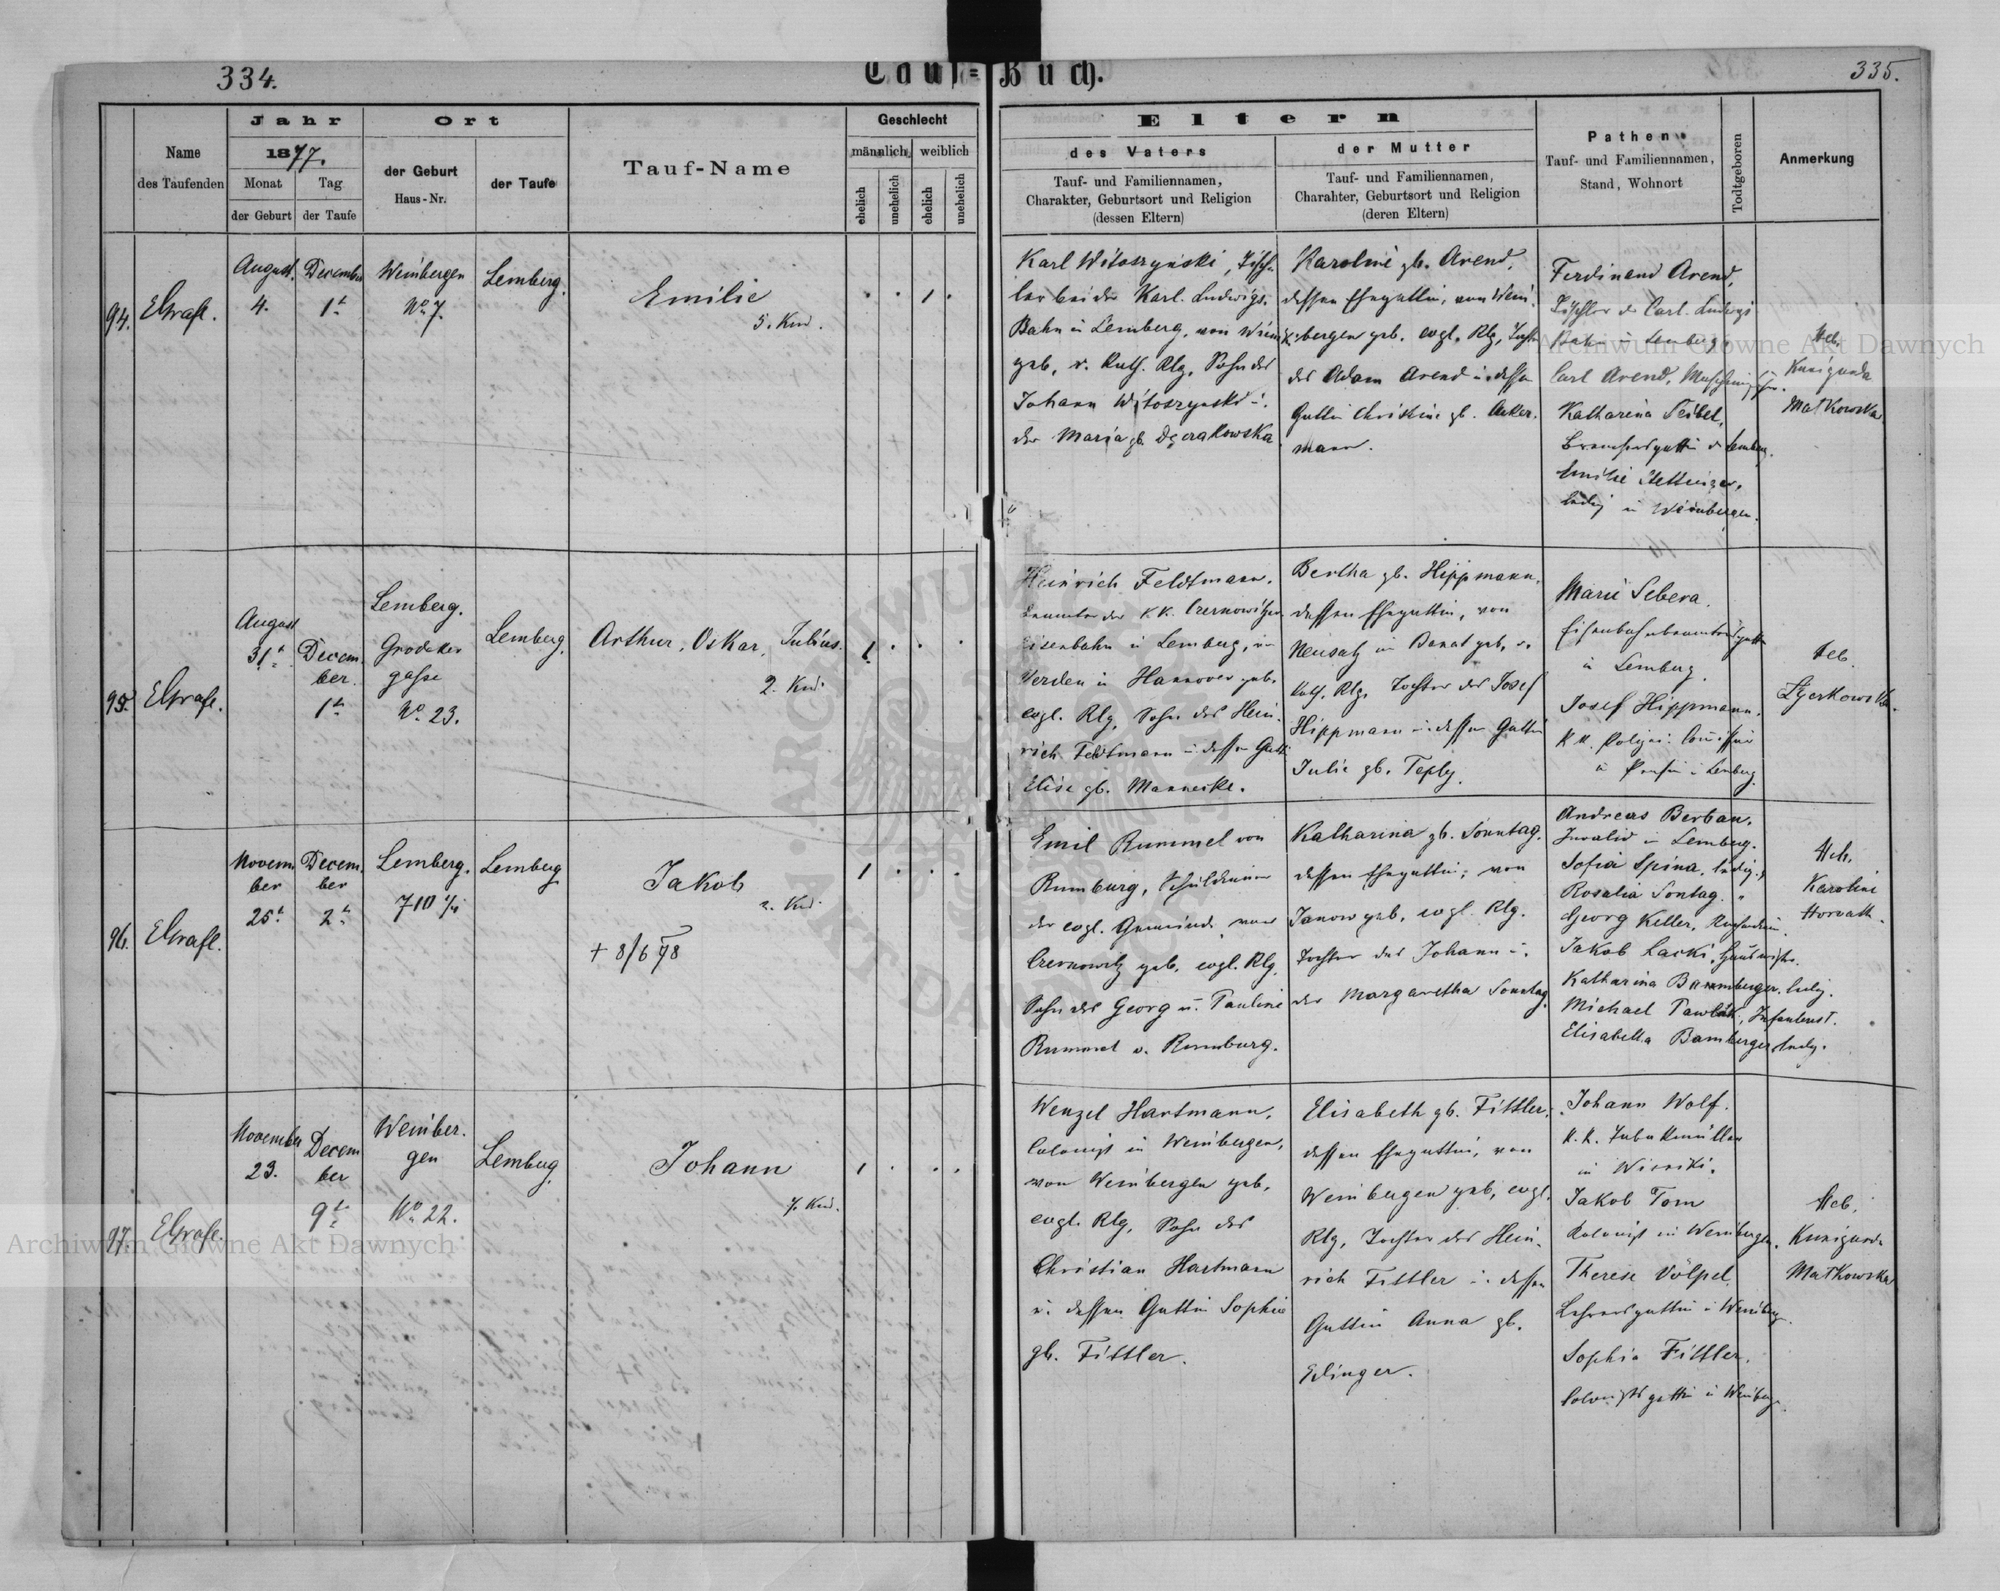 334.
Tauf=Buch.
335.
Name
des Taufenden
Jahr
1877.
Monat
Tag
der Geburt
der Taufe
Ort
der Geburt
Haus-Nr.
der Taufe
Tauf-Name
Geschlecht
männlich
weiblich
ehelich
unehelich
ehelich
unehelich
Eltern
des Vaters
Tauf- und Familiennamen,
Charakter, Geburtsort und Religion
(dessen Eltern)
der Mutter
Tauf- und Familiennamen,
Charakter, Geburtsort und Religion
(deren Eltern)
Pathen
Tauf- und Familiennamen,
Stand, Wohnort
Todtgeboren
Anmerkung
94.
August
4.
December
1t
Weinbergen
No 7.
Lemberg.
Emilie
5. Kind.
1
Karl Witoszyński, Tisch-
ler bei der Karl. Ludwigs.
Bahn in Lemberg, von
geb. r. kath. Rlg, Sohn des
Johann Witoszynski u.
der Maria gb.
Karoline gb. Arend,
dessen Ehegattin, von Wein-
bergen geb. evgl. Rlg, Tochter
des Adam Arend u. dessen
Gattin Christine gb. Acker-
mann.
Ferdinand Arend,
Tischler d. Carl. Ludwigs
Bahn in Lemberg
Carl Arend,
Katharina Seibel,
Emilie
ledig in Weinbergen.
Heb.
Kunigunda
Matkowska
95.
August
31t
Decem-
ber.
1t
Lemberg.
Grodeker
gasse
No 23.
Lemberg.
Arthur, Oskar, Julius.
2. Kind.
1
Heinrich Feldtmann,
Beamter der K.K. Czernowitzer
Eisenbahn in Lemberg, in
Verden in Hannover geb.
evgl. Rlg, Sohn des Hein-
rich Feldtmann u. dessen Gattin
Elise gb. Manneske.
Bertha gb. Hippmann,
dessen Ehegattin, von
Neusatz im Banat geb. r.
kath. Rlg, Tochter des Josef
Hippmann u. dessen Gattin
Julie gb. Teply.
Marie Sebera,
Eisenbahnbeamtensgattin
in Lemberg.
Josef Hippmann,
k.k. Polizei-
in Pension in Lemberg.
Heb.
96.
Novem-
ber
25t
Decem-
ber
2t
Lemberg.
710 1/4
Lemberg
Jakob
2. Kind.
+ 8/6 878
1
Emil Rummel von
Rumburg, Schuldiener
der evgl. Gemeinde, von
Czernowitz geb. evgl. Rlg,
Sohn des Georg u. Pauline
Rummel v. Rumburg.
Katharina gb. Sonntag.
dessen Ehegattin, von
Janow geb, evgl. Rlg.
Tochter des Johann u.
der Margaretha Sonntag.
Andreas Berban,
Invalid in Lemberg.
Sofia Spina, ledig.
Rosalia Sontag. "
Georg Keller,
Jakob Lacki,
Katharina Bammberger, ledig.
Michael Pawlik, Infanterist.
Elisabetha Bamberger, ledig.
Heb.
Karoline
Horvath.
97.
November
23.
Decem
ber
9t
Weinber-
gen
No 22.
Lemberg.
Johann
7. Kind.
1
Wenzel Hartmann,
Colonist in Weinbergen,
von Weinbergen geb.
evgl. Rlg, Sohn des
Christian Hartmann
u. dessen Gattin Sophie
gb. Fittler.
Elisabeth gb. Fittler,
dessen Ehegattin, von
Weinbergen geb, evgl.
Rlg, Tochter des Hein-
rich Fittler u. dessen
Gattin Anna gb.
Edinger.
Johann Wolf.
in Winniki.
Jakob Tom
Kolonist in Weinbergen.
Therese Völpel
Lehrersgattin in Weinbergen.
Sophie Fittler,
Colonistsgattin in Weinbergen.
Heb.
Kunigunda
Matkowska
Archiwum Główne Akt Dawnych
Archiwum Główne Akt Dawnych